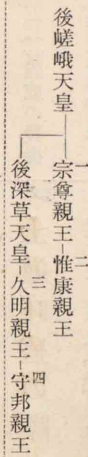 後嵯峨天皇
一宗尊親王
二惟康親王
後深草天皇
三久明親王
四守邦親王